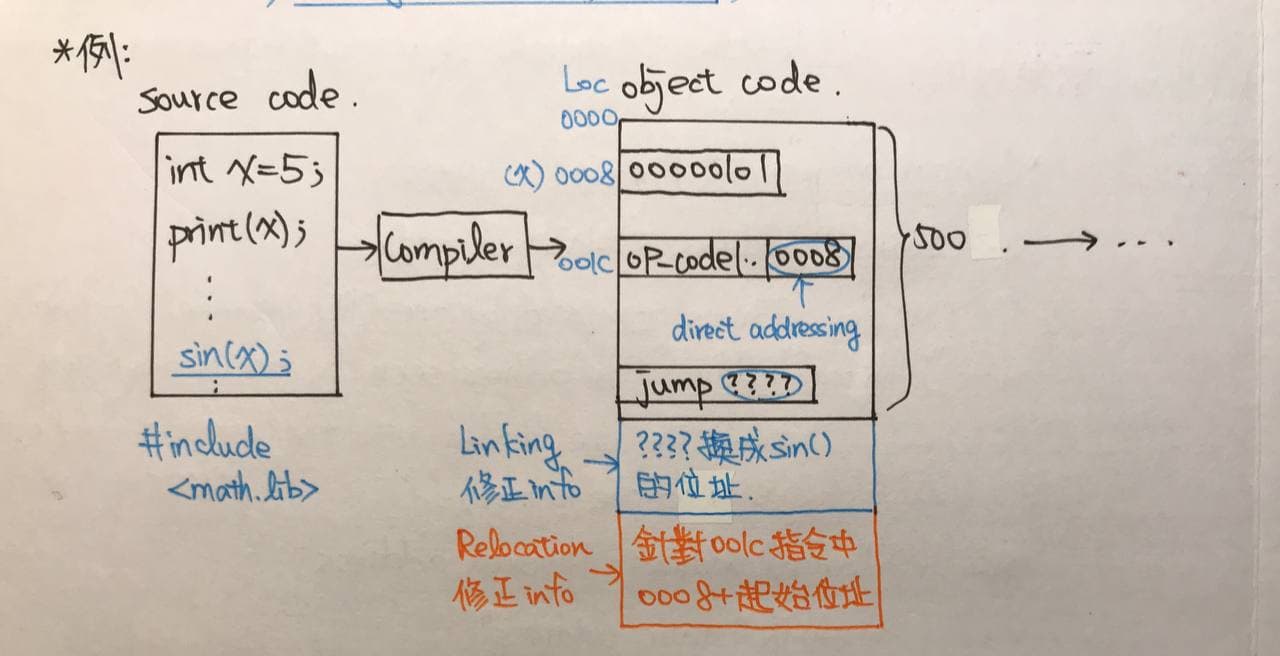 *例:
source code.
int x=5;
print(x);
⋮
sin(x);
⋮
#include
<math.lib>
Compiler
Loc object code.
0000
(x) 0008 00000101
001C OP_code|.. 0008
direct addressing
jump ????
500 . → ...
Linking
修正info
????換成sin()
的位址.
Relocation
修正info
針對001c指令中
0008+起始位址